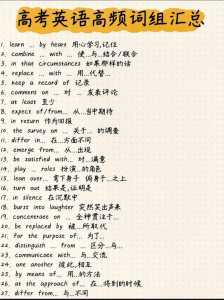 高考英语高频词组汇总
1. learn … by heart 用心学习,记住
2. combine … with … 使…与…结合/联合
3. in that circumstances 如果那样的话
4. replace … with … 用…代替…
5. keep a record of 记录
6. comment on … 对 … 发表评论
7. at least 至少
8. expect of/from … 从…当中期待
9. in return 作为回报
10. the survey on … 关于… 的调查
11. differ in… 在…方面不同
12. emerge from… 从…出现
13. be satisfied with… 对…满意
14. play … roles 扮演…的角色
15. lean over… 弯下身子 俯身于…之上
16. turn out 结果是,证明是
17. in silence 在沉默中
18. burst into laughter 突然笑出声来
19. concentrate on … 全神贯注于…
20. be replaced by 被…所取代
21. for the purpose of… 为了…
22. distinguish … from … 区分…与…
23. communicate with… 与…交流
24. one another 彼此,相互
25. by means of… 用…的方法
26. at the approach of… 在…将到的时候
27. differ from… 与…不同